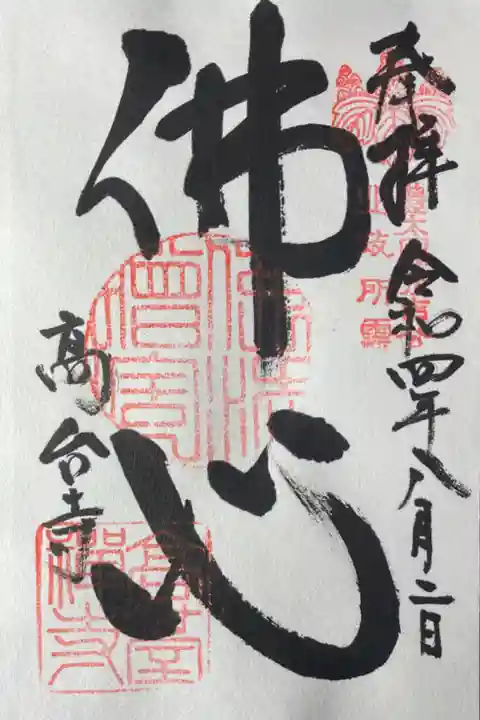 奉拝 令和四年八月二日
佛心
高台寺